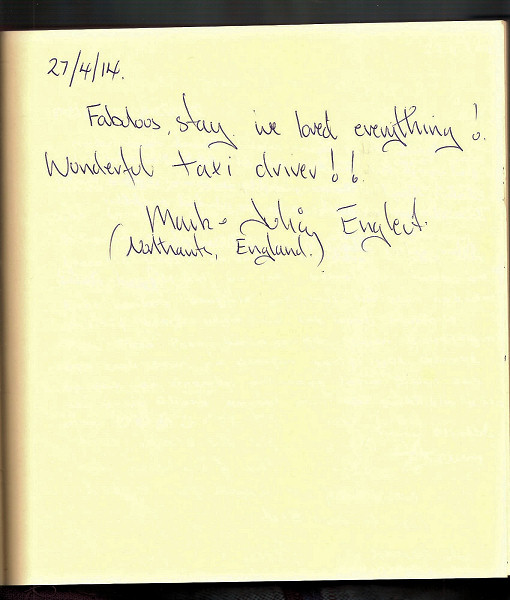 27/4/14.
Fabulous, stay. we loved everything!
Wonderful taxi driver!!
Mark & Julia
(Northants, England.)